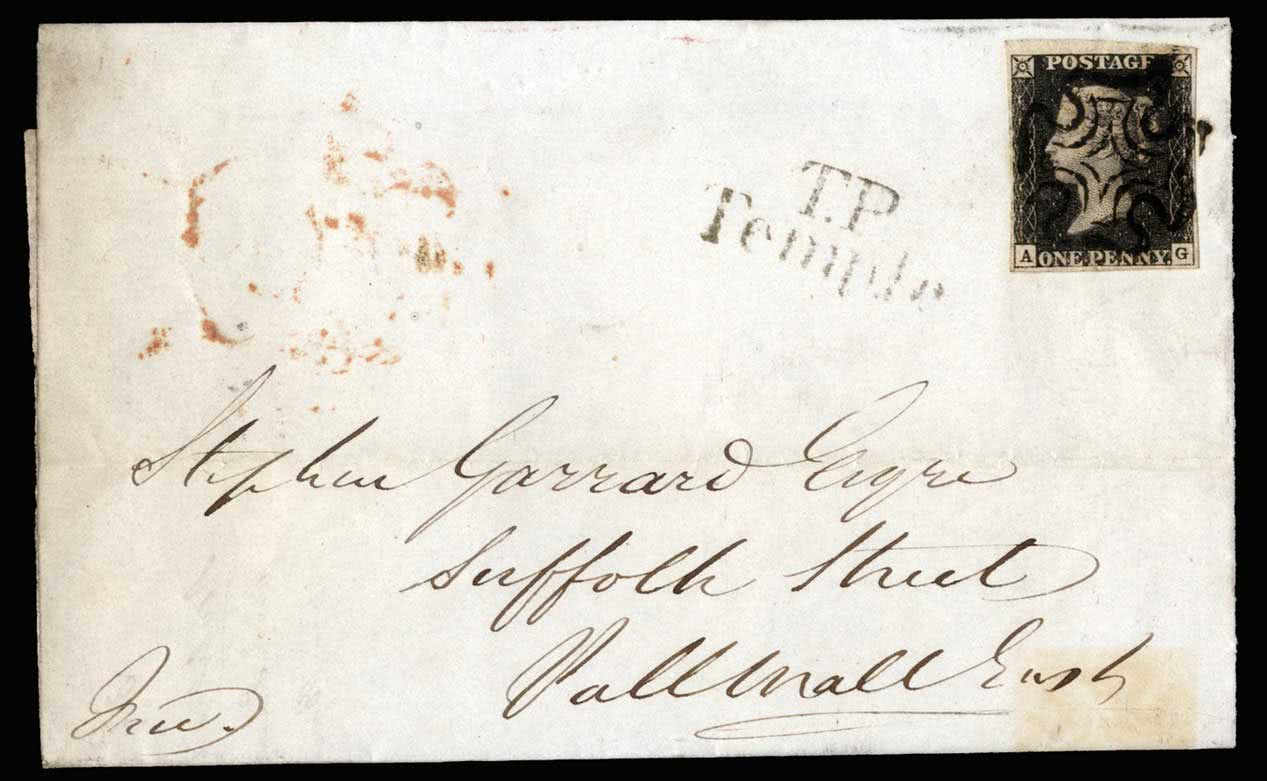 POSTAGE
A ONE PENNY G
T.P
Temple
Stephen Garrard Esqre
Suffolk Street
Pall Mall East